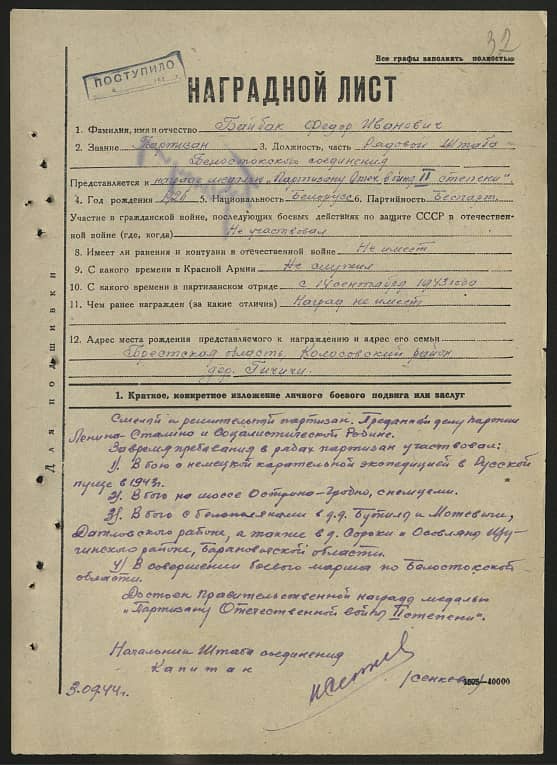 32
Все графы заполнять полностью
ПОСТУПИЛО
НАГРАДНОЙ ЛИСТ
1. Фамилия, имя и отчество Байбак Федор Иванович
2. Звание Партизан 3. Должность, часть Рядовой Штаба
Белостокского соединения
Представляется к награде медалью "Партизану Отеч. войны II степени".
4. Год рождения 5. Национальность Белорусс 6. Партийность Беспарт.
Участие в гражданской войне, последующих боевых действиях по защите СССР в отечествен-
ной войне (где, когда) Не участвовал
8. Имеет ли ранения и контузии в отечественной войне Не имеет
9. С какого времени в Красной Армии Не служил
10. С какого времени в партизанском отряде с 14 сентября 1943 года
11. Чем ранее награжден (за какие отличия) Наград не имеет
12. Адрес места рождения представляемого к награждению и адрес его семьи
Брестская область, Колосовский район
дер. Гичичи.
Для подшивки
1. Краткое, конкретное изложение личного боевого подвига или заслуг
Смелый и решительный партизан. Преданный делу партии
Ленина-Сталина и Социалистической Родине.
За время пребывания в рядах партизан участвовал:
1). В бою с немецкой карательной экспедицией в Русской
пуще в 1943 г.
2). В бою на шоссе Острино-Гродно, с немцами.
3). В бою с белополяками в д.д. Бутила и Мотевичи,
района, а также в д. Сороки и
районе, Барановической области.
4) В совершении боевого марша по Белостокской
области.
Достоен Правительственной награды медалью
"Партизану Отечественной войны II степени".
Начальник Штаба соединения
Капитан
3.09.44 г.
-40000